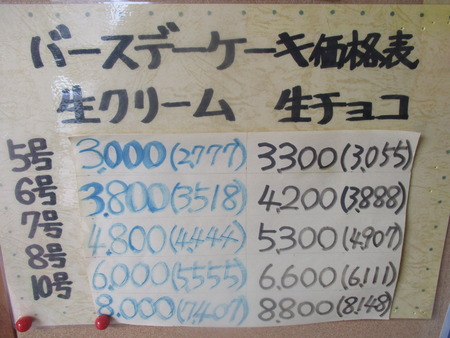 バースデーケーキ価格表
生クリーム 生チョコ
5号 3.000(2.777) 3.300(3.055)
6号 3.800(3.518) 4.200(3.888)
7号 4.800(4.444) 5.300(4.907)
8号 6.000(5.555) 6.600(6.111)
10号 8.000(7.407) 8.800(8.148)